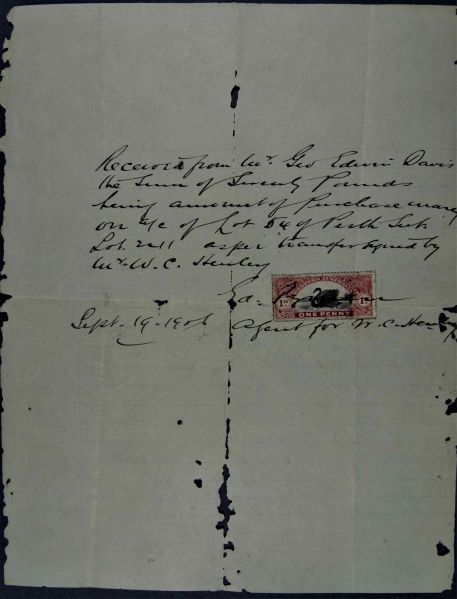 Received from Mr. Geo Edwin Davis
the Sum of Seventy Pounds
being amount of Purchase money
on a/c of Lot 54 of Perth Sub
Lot 2411 as per transfer signed by
Mr. W. C. Henley
Ed.
1D 1D
ONE PENNY
Sept. 19. 1906 Agent for W. C. Henley